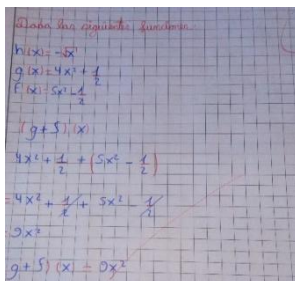 Dada las siguientes funciones
h(x)=-5x
g(x)=4x²+1/2
f(x)=5x²-1/2
(g+5)(x)
4x²+1/2+(5x²-1/2)
=4x²+1/2+5x²-1/2
9x²
g+5)(x)=9x²